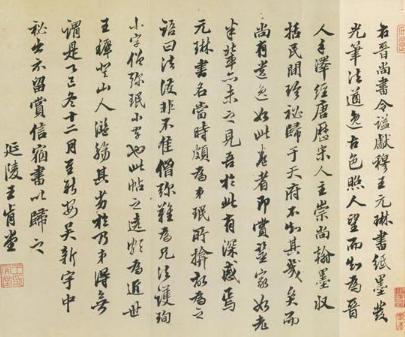 右晉尚書令謚獻穆王元琳書紙墨發
光筆法遒逸古色照人望而知為晉
人手澤經唐歷宋人主崇尚翰墨收
括民間珍秘歸于天府不知其幾矣而
尚有遺逸如此卷者即賞鑒家如老
米輩亦未之見吾於此有深感焉
元琳書名當時頗為弟珉所揜故為之
語曰法護非不佳僧彌難為兄法護珣
小字僧彌珉小字也此帖之為近世
王山人其劣於乃弟得無
謂是乎冬十二月至新安吳新宇中
秘出示留賞信宿書以歸之
延陵王肯堂